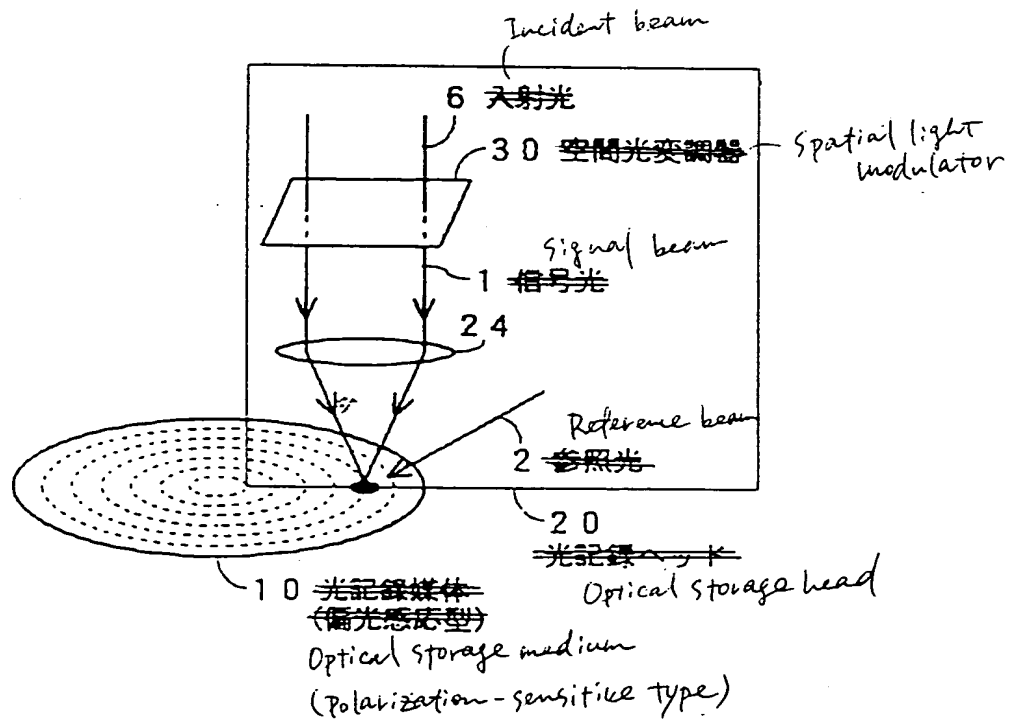 Incident beam
6 入射光
30 空間光変調器
Spatial light
modulator
Signal beam
1 信号光
24
Reference beam
2 参照光
20
光記録ヘッド
Optical storage head
10 光記録媒体
(偏光感応型)
Optical storage medium
(Polarization-sensitive type)